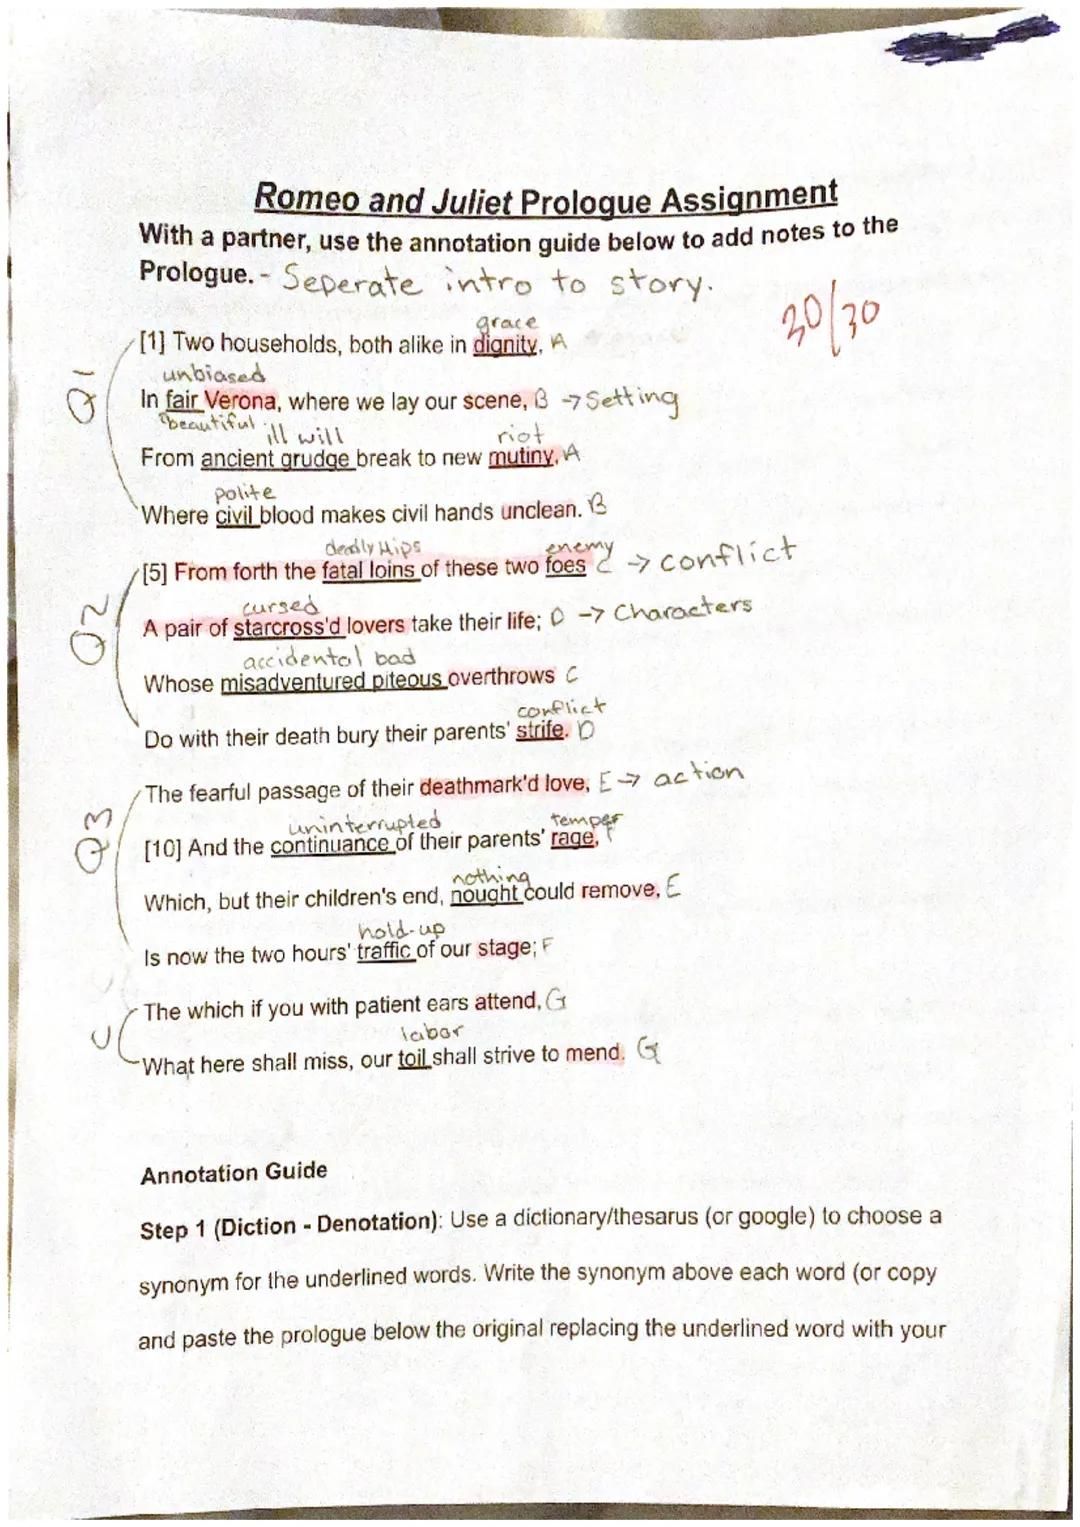 Romeo and Juliet Prologue Assignment
With a partner, use the annotation guide below to add notes to the
Prologue. - Seperate intro to story.
30/30
grace
[1] Two households, both alike in dignity, A
unbiased
Q1
In fair Verona, where we lay our scene, B → Setting
beautiful
ill will riot
From ancient grudge break to new mutiny, A
polite
Where civil blood makes civil hands unclean. B
deadly hips enemy
[5] From forth the fatal loins of these two foes C → conflict
cursed
Q2
A pair of starcross'd lovers take their life; D → Characters
accidental bad
Whose misadventured piteous overthrows C
conflict
Do with their death bury their parents' strife. D
The fearful passage of their deathmark'd love, E → action
uninterrupted temper
Q3
[10] And the continuance of their parents' rage, F
nothing
Which, but their children's end, nought could remove, E
hold-up
Is now the two hours' traffic of our stage; F
The which if you with patient ears attend, G
labor
What here shall miss, our toil shall strive to mend. G
Annotation Guide
Step 1 (Diction - Denotation): Use a dictionary/thesarus (or google) to choose a
synonym for the underlined words. Write the synonym above each word (or copy
and paste the prologue below the original replacing the underlined word with your